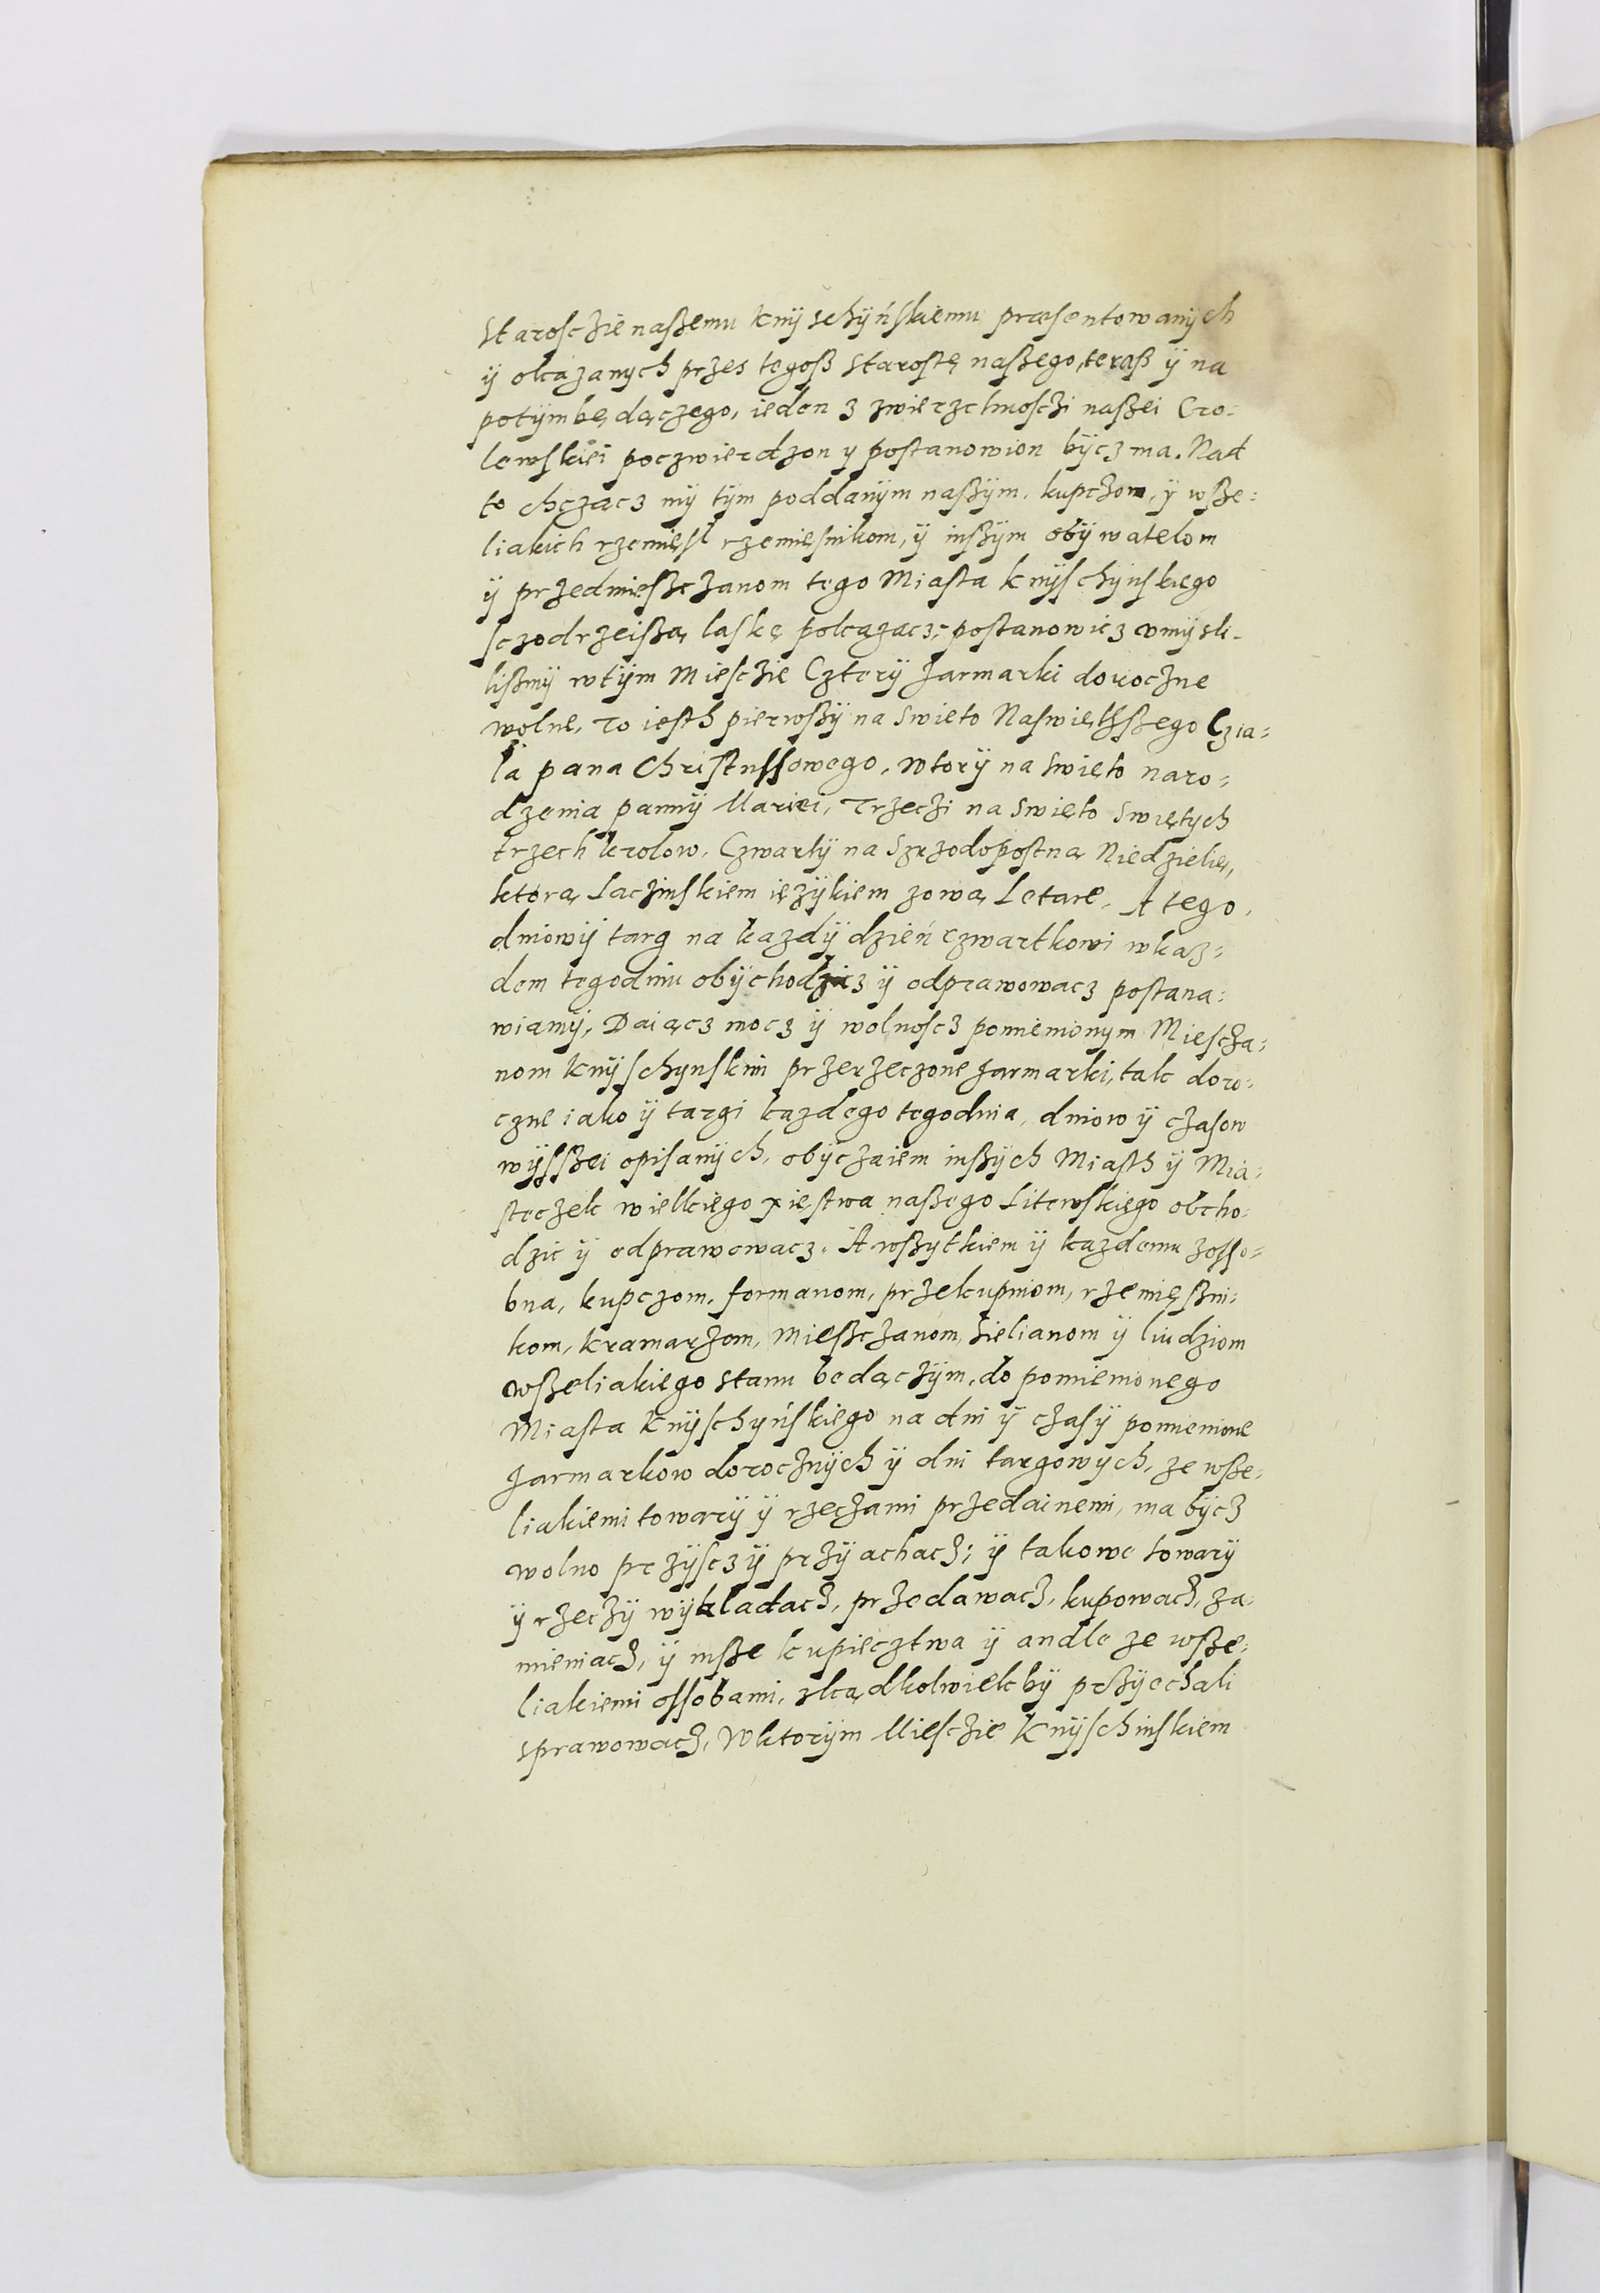 Starosczie naßemu knÿschÿńskiemu præsentowanÿch
ÿ okazanych przes tegoß Starostę naßego, teraß ÿ na
potÿm będączego, ieden z zwierzchnosczi naßei Cro-
lewskiei poczwierdzon y postanowion bÿcz ma. Nad
to chczącz mÿ tÿm poddanÿm naßÿm, kupczom, ÿ wße-
liakich rzemięsł rzemięsnikom, ÿ inßÿm obÿwatelom
ÿ przedmießczanom tego Miasta knÿschÿnskiego
sczodrzeißą laskę pokazacz, postanowicz vmÿsli-
lismÿ wtÿm Miesczie Czterÿ Jarmarki doroczne
wolne, To iesth pierwßÿ na swieto Naswiethszego Czia-
ła pana Christussowego, wtorÿ na swieto naro-
dzenia pannÿ Mariei, Trzeczi na swięto swiętych
trzech krolow, Czwartÿ na Szrzodopostną Niedzielię,
ktorą Laczinskiem ięzÿkiem zową Letare, A tego-
dniowÿ targ na kazdÿ dzień czwartkowi wkaz-
dem tegodniu obÿchodzicz ÿ odprawowacz postana-
wiamÿ, Daiącz mocz ÿ wolnoscz pomienionym Miescza-
nom knÿschynskim przerzeczone Jarmarki, tak doro-
czne iako ÿ targi kazdego tegodnia, dniow ÿ czasow
wÿsßei opisanÿch, obÿczaiem inßÿch Miasth ÿ Mia-
steczek wielkiego xięstwa naßego Litewskiego obcho-
dzic ÿ odprawowacz. A wßytkiem ÿ kazdemu zosso-
bna, kupczom, formanom, przekupniom, rzemięßni-
kom, kramarzom, Mießczanom, Sielianom ÿ liudziom
wßeliakiego stanu bedączÿm, do pomienionego
Miasta knÿschyńskiego na dni ÿ czasÿ pomienione
Jarmarkow dorocznÿch ÿ dni targowych, ze wße-
liakiemi towarÿ ÿ rzeczami przedainemi, ma bÿcz
wolno przÿscz ÿ przÿachacz; ÿ takowe towarÿ
ÿ rzeczÿ wÿkladacz, przedawacz, kupowacz, za-
mieniacz, ÿ inße kupiecztwa ÿ andle ze wße-
liakiemi ossobami, zkądkolwiek bÿ przÿechali
sprawowacz, Wktorÿm Miesczie knÿschinskiem